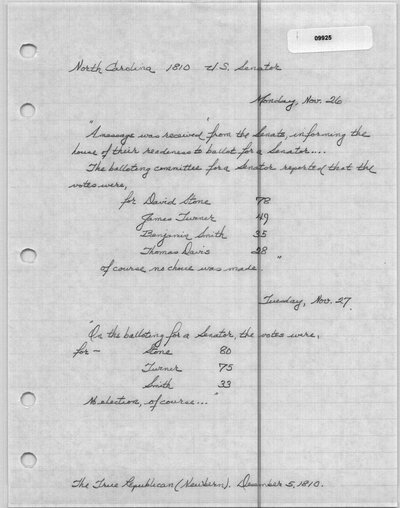 09925
North Carolina 1810 U.S. Senator
Monday, Nov. 26
"A message was received from the Senate, informing the
house of their readiness to ballot for a Senator....
The balloting committee for a Senator reported that the
votes were,
for David Stone 78
James Turner 49
Benjamin Smith 35
Thomas Davis 28
of course no choice was made."
Tuesday, Nov. 27.
"On the balloting for a Senator, the votes were,
for - Stone 80
Turner 75
Smith 33
No election, of course..."
The True Republican (Newbern). December 5, 1810.